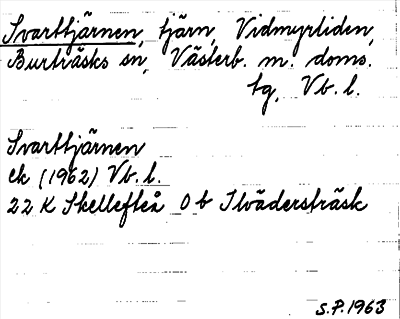 Svarttjärnen, tjärn, Vidmyrliden,
Burträsks sn, Västerb. m. doms.
tg, Vb. l.
Svarttjärnen
ek (1962) Vb. l.
22 K Skellefteå 0 b Ilvädersträsk
S.P. 1963